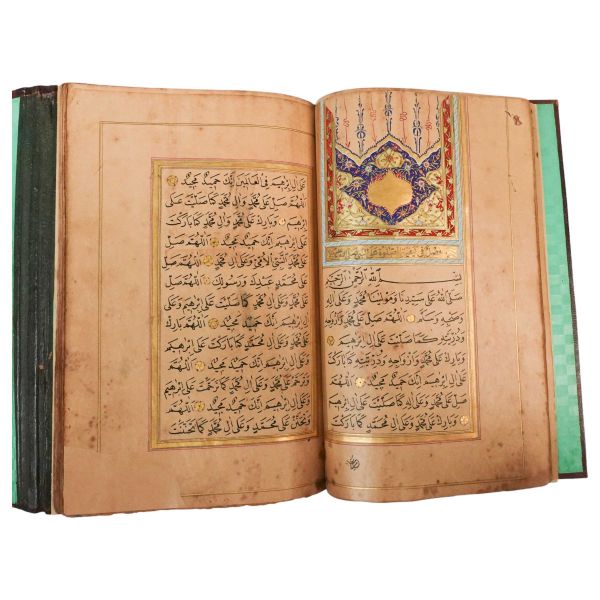 فصل في كيفية الصلاة على النبي صلى الله عليه
بسم الله الرحمن الرحيم
صلى الله على سيدنا ومولينا محمد وعلى اله
وصحبه وسلم اللهم صل على محمد وازواجه
وذريته كما صليت على ابرهيم
وبارك على محمد وازواجه وذريته كما باركت
على ال ابرهيم انك حميد مجيد اللهم
صل على محمد وعلى اله كما صليت على ابرهيم
وبارك على محمد وعلى ال محمد كما باركت
على ال ابرهيم في العالمين انك حميد مجيد
اللهم صل على محمد وال محمد كما صليت على
ابرهيم وبارك على محمد وال محمد كما باركت
على ابرهيم انك حميد مجيد اللهم صل
على محمد النبي الامي وعلى ال محمد اللهم صل
على محمد عبدك ورسولك اللهم صل
على محمد وعلى ال محمد كما صليت على ابرهيم وعلى
ال ابرهيم انك حميد مجيد اللهم بارك
على محمد وعلى ال محمد كما باركت على ابرهيم
وعلى ال ابرهيم انك حميد مجيد اللهم
وترحم على محمد وعلى ال محمد كما ترحمت على ابرهيم
وعلى ال ابرهيم انك حميد مجيد اللهم
وتحنن على محمد وعلى ال محمد كما تحننت